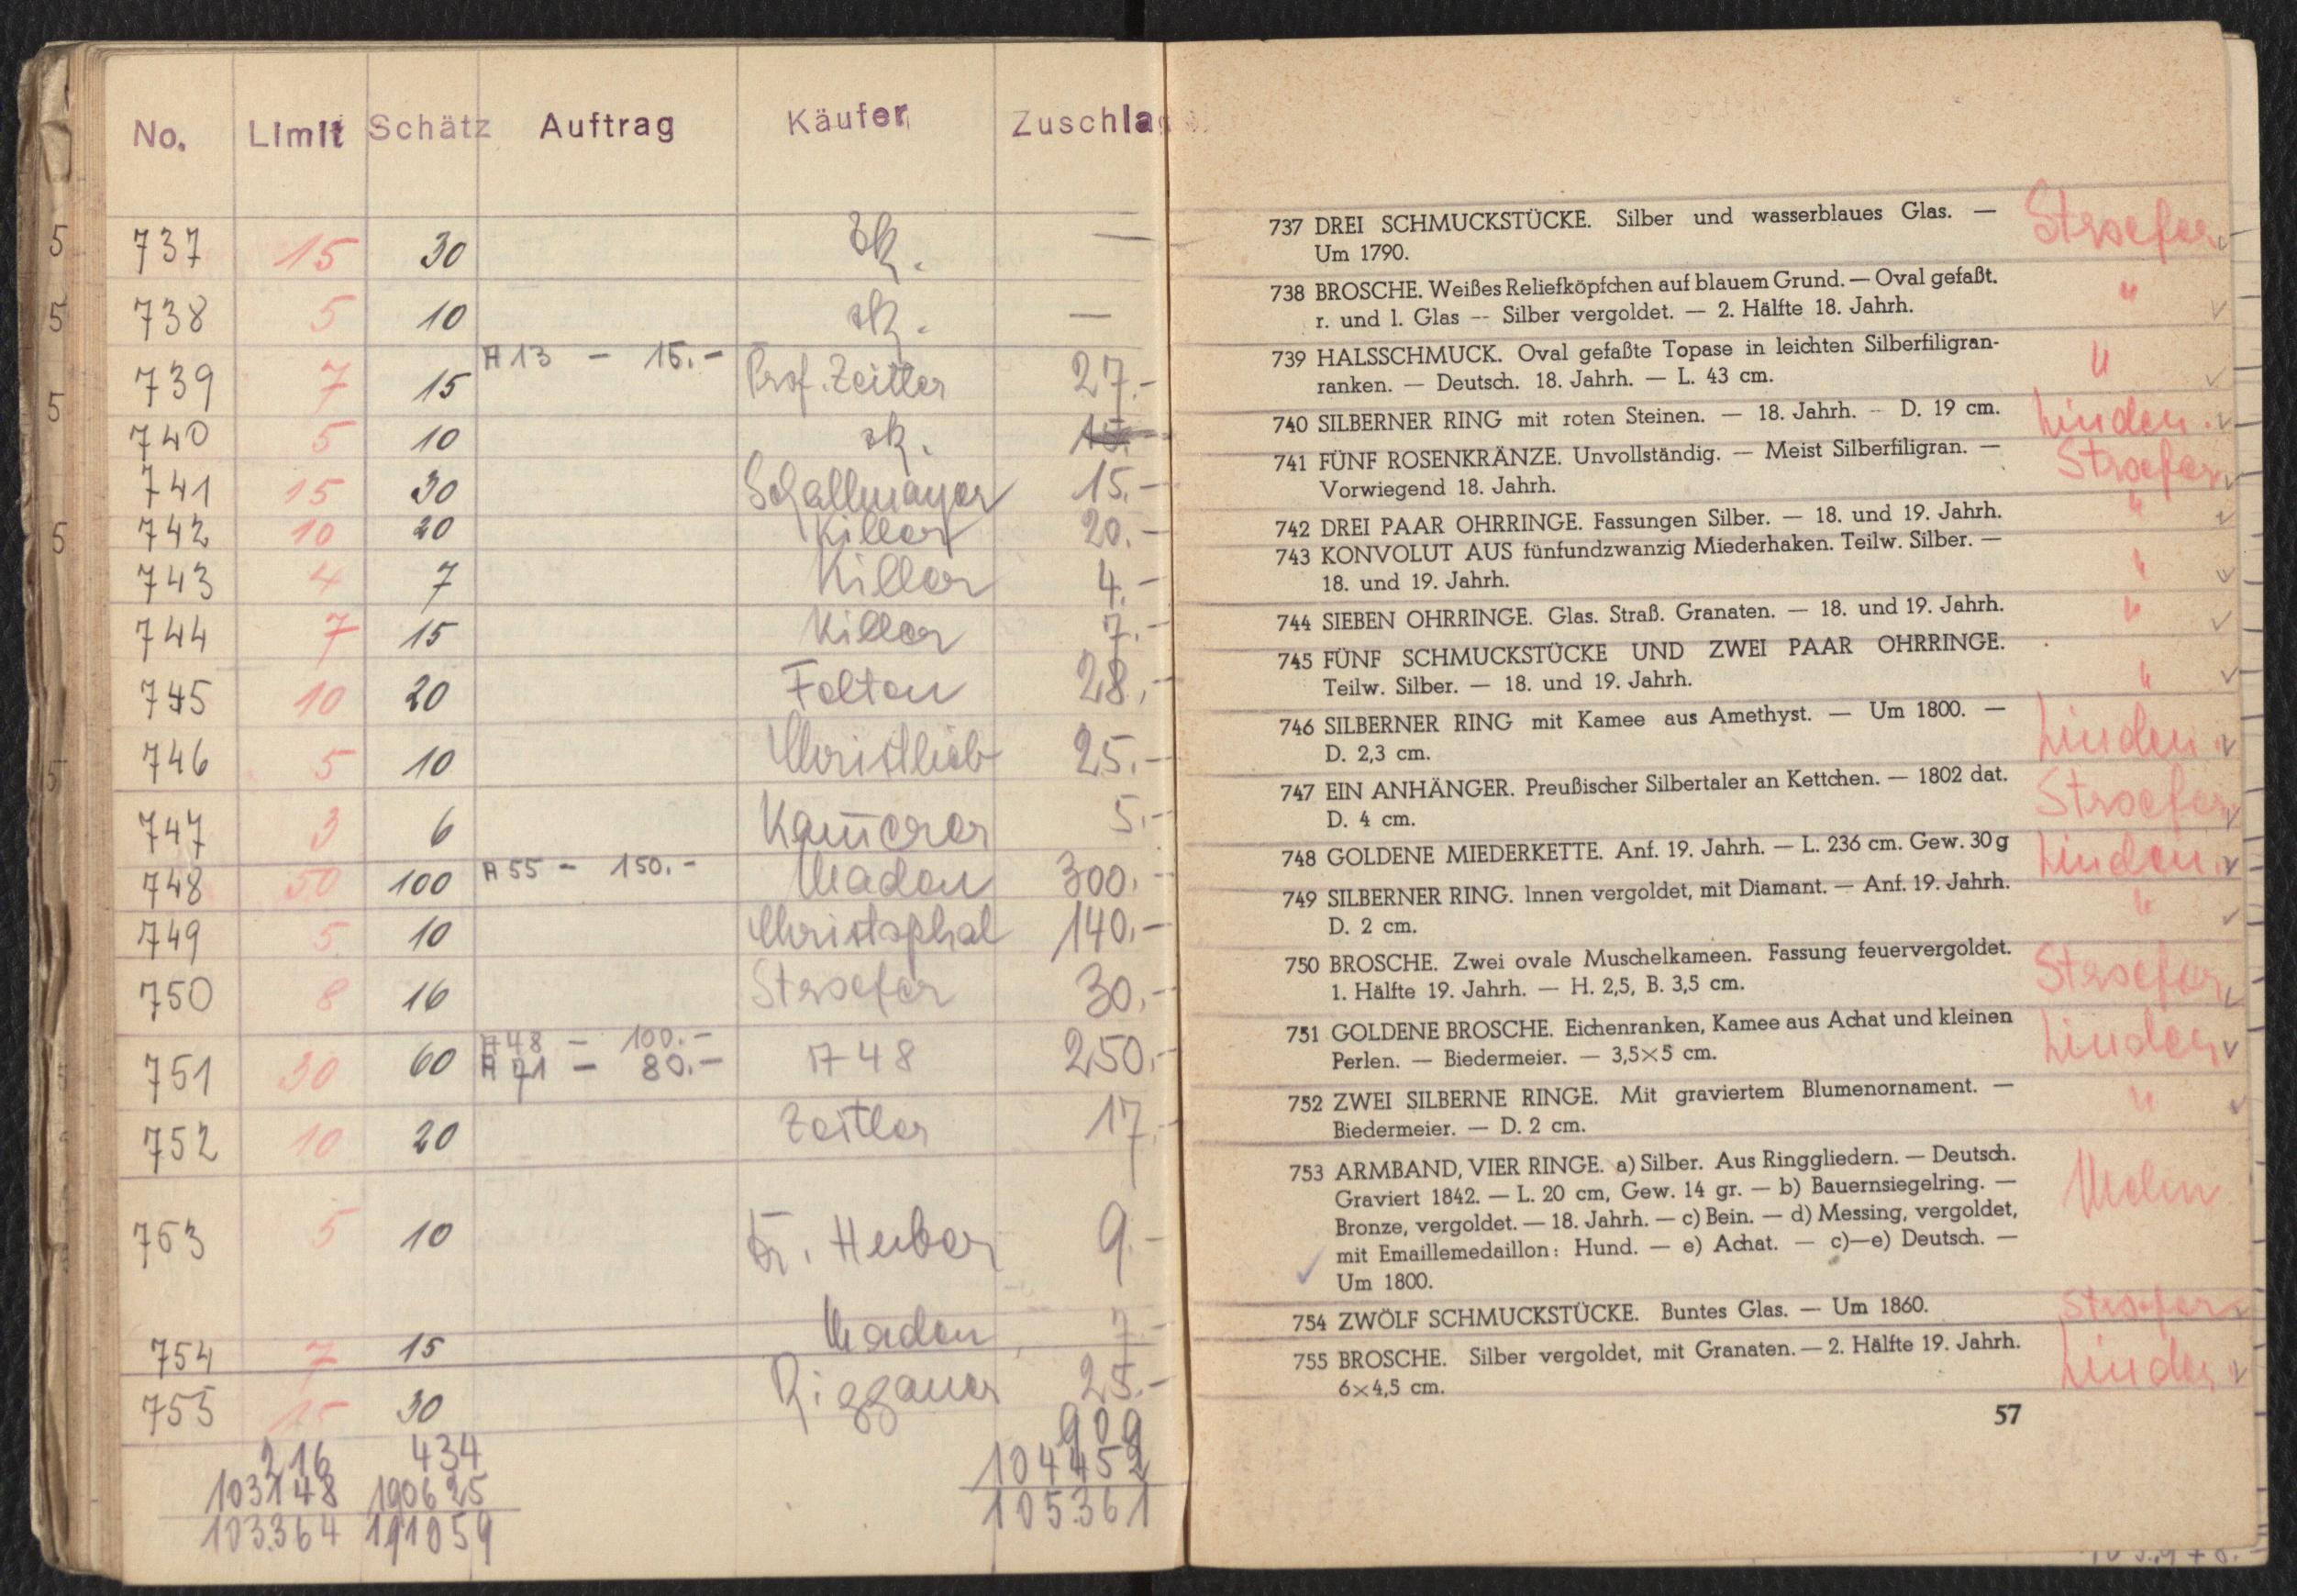 No. Limit Schätz Auftrag Käufer Zuschlag
5 737 15 30 zk. —
5 738 5 10 zk. —
739 7 15 A 13 – 15.– Prof. Zeitler 27.–
5 740 5 10 zk. 15.–
741 15 30 Schallmayer 15.–
5 742 10 20 Killer 20.–
743 4 7 Killer 4.–
744 7 15 Killer 7.–
745 10 20 Felten 28.–
746 5 10 Christlieb 25.–
5 747 3 6 Kam̄erer 5.–
748 50 100 A 55 – 150.– Maden 300.–
749 5 10 Christophel 140.–
750 8 16 Stroefer 30.–
A 48 – 100.–
751 30 60 A 71 – 80.– A 48 250.–
752 10 20 Zeitler 17.–
753 5 10 Fr. Huber 9.–
754 7 15 Maden 7.–
755 15 30 Riggauer 25.–
216 434 909
103148 190625 104452
103.364 191059 105.361
737 DREI SCHMUCKSTÜCKE. Silber und wasserblaues Glas. — Stroefer
Um 1790.
738 BROSCHE. Weißes Reliefköpfchen auf blauem Grund. — Oval gefaßt. "
r. und l. Glas -- Silber vergoldet. — 2. Hälfte 18. Jahrh.
739 HALSSCHMUCK. Oval gefaßte Topase in leichten Silberfiligran- "
ranken. — Deutsch. 18. Jahrh. — L. 43 cm.
740 SILBERNER RING mit roten Steinen. — 18. Jahrh. - D. 19 cm. Linden.
741 FÜNF ROSENKRÄNZE. Unvollständig. — Meist Silberfiligran. — Stroefer
Vorwiegend 18. Jahrh.
742 DREI PAAR OHRRINGE. Fassungen Silber. — 18. und 19. Jahrh. "
743 KONVOLUT AUS fünfundzwanzig Miederhaken. Teilw. Silber. — "
18. und 19. Jahrh.
744 SIEBEN OHRRINGE. Glas. Straß. Granaten. — 18. und 19. Jahrh. "
745 FÜNF SCHMUCKSTÜCKE UND ZWEI PAAR OHRRINGE.
Teilw. Silber. — 18. und 19. Jahrh. "
746 SILBERNER RING mit Kamee aus Amethyst. — Um 1800. — Linden.
D. 2,3 cm.
747 EIN ANHÄNGER. Preußischer Silbertaler an Kettchen. — 1802 dat. Stroefer
D. 4 cm.
748 GOLDENE MIEDERKETTE. Anf. 19. Jahrh. — L. 236 cm. Gew. 30 g Linden.
749 SILBERNER RING. Innen vergoldet, mit Diamant. — Anf. 19. Jahrh. "
D. 2 cm.
750 BROSCHE. Zwei ovale Muschelkameen. Fassung feuervergoldet. Stroefer
1. Hälfte 19. Jahrh. — H. 2,5, B. 3,5 cm.
751 GOLDENE BROSCHE. Eichenranken, Kamee aus Achat und kleinen Linden
Perlen. — Biedermeier. — 3,5×5 cm.
752 ZWEI SILBERNE RINGE. Mit graviertem Blumenornament. — "
Biedermeier. — D. 2 cm.
753 ARMBAND, VIER RINGE. a) Silber. Aus Ringgliedern. — Deutsch.
Graviert 1842. — L. 20 cm, Gew. 14 gr. — b) Bauernsiegelring. —
Bronze, vergoldet. — 18. Jahrh. — c) Bein. — d) Messing, vergoldet,
mit Emaillemedaillon: Hund. — e) Achat. — c)—e) Deutsch. —
Um 1800.
754 ZWÖLF SCHMUCKSTÜCKE. Buntes Glas. — Um 1860. Stroefer
755 BROSCHE. Silber vergoldet, mit Granaten. — 2. Hälfte 19. Jahrh. Linden
6×4,5 cm.
57